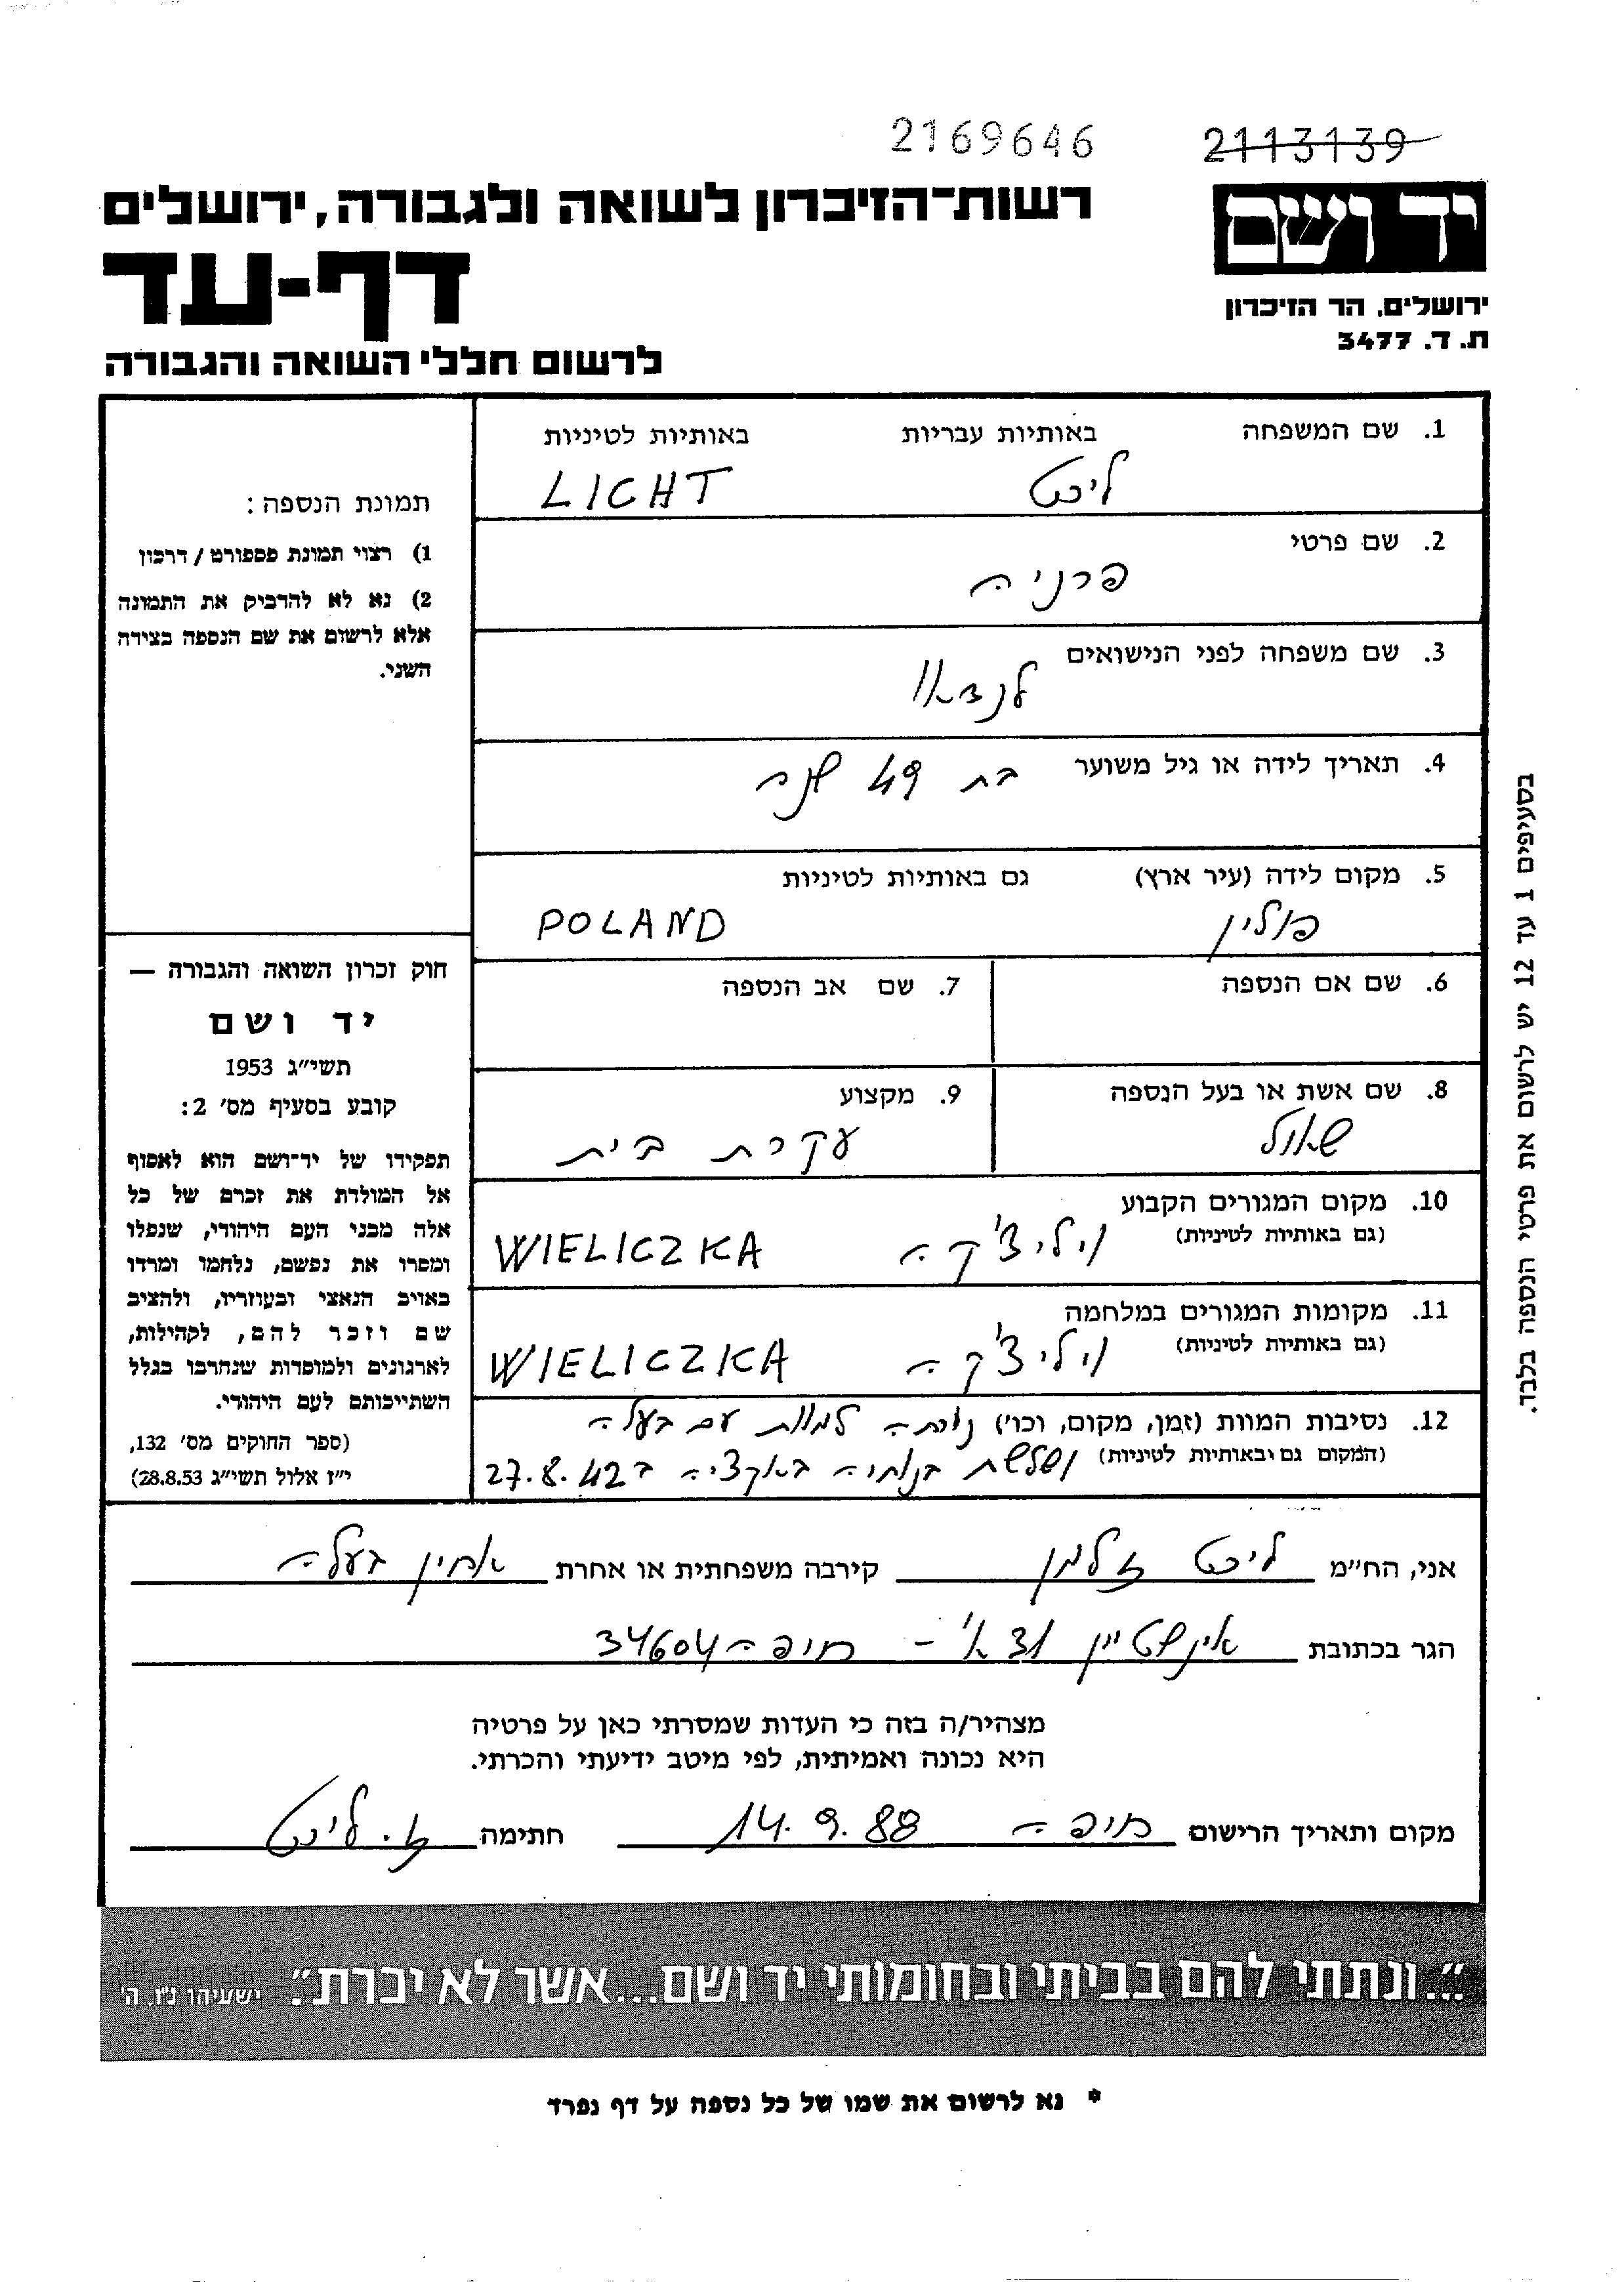 2169646
2113139
רשות־הזיכרון לשואה ולגבורה, ירושלים
יד ושם
דף-עד
ירושלים, הר הזיכרון
ת. ד. 3477
לרשום חללי השואה והגבורה
1. שם המשפחה באותיות עבריות באותיות לטיניות
ליכט LICHT
2. שם פרטי
פרניה
3. שם משפחה לפני הנישואים
לנדאו
4. תאריך לידה או גיל משוער בת 49 שנה
5. מקום לידה (עיר ארץ) גם באותיות לטיניות
פולין POLAND
6. שם אם הנספה
7. שם אב הנספה
8. שם אשת או בעל הנספה
שאול
9. מקצוע
עקרת בית
10. מקום המגורים הקבוע
(גם באותיות לטיניות) ויליצ'קה WIELICZKA
11. מקומות המגורים במלחמה
(גם באותיות לטיניות) ויליצ'קה WIELICZKA
12. נסיבות המוות (זמן, מקום, וכו') עם בעלה
(המקום גם באותיות לטיניות) ושלשת בנותיה באקציה ב 27.8.42
תמונת הנספה:
1) רצוי תמונת פספורט / דרכון
2) נא לא להדביק את התמונה
אלא לרשום את שם הנספה בצידה
השני.
חוק זכרון השואה והגבורה —
יד ושם
תשי״ג 1953
קובע בסעיף מס׳ 2:
תפקידו של יד־ושם הוא לאסוף
אל המולדת את זכרם של כל
אלה מבני העם היהודי, שנפלו
ומסרו את נפשם, נלחמו ומרדו
באויב הנאצי ובעוזריו, ולהציב
שם וזכר להם, לקהילות,
לארגונים ולמוסדות שנחרבו בגלל
השתייכותם לעם היהודי.
(ספר החוקים מס׳ 132,
י״ז אלול תשי״ג 28.8.53)
בסעיפים 1 עד 12 יש לרשום את פרטי הנספה בלבד.
אני, הח״מ ליכט זלמן קירבה משפחתית או אחרת אחין בעלה
הגר בכתובת אינשטיין 31 א' – חיפה 34604
מצהיר/ה בזה כי העדות שמסרתי כאן על פרטיה
היא נכונה ואמיתית, לפי מיטב ידיעתי והכרתי.
מקום ותאריך הרישום חיפה 14.9.88 חתימה ז. ליכט
״...ונתתי להם בביתי ובחומותי יד ושם...אשר לא יכרת״. ישעיהו נ״ו, ה׳
* נא לרשום את שמו של כל נספה על דף נפרד